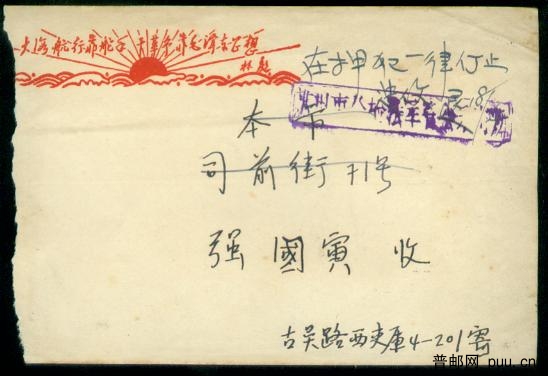 大海航行靠舵手 干革命靠毛泽东思想
林彪
在押犯一律停止
本市
司前街71号
强國寅 收
古吴路西夹库4-201寄
普邮网 puu.cn